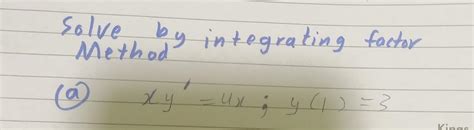 Solve by integrating factor
Method
(a) xy' = 4x ; y(1) = 3